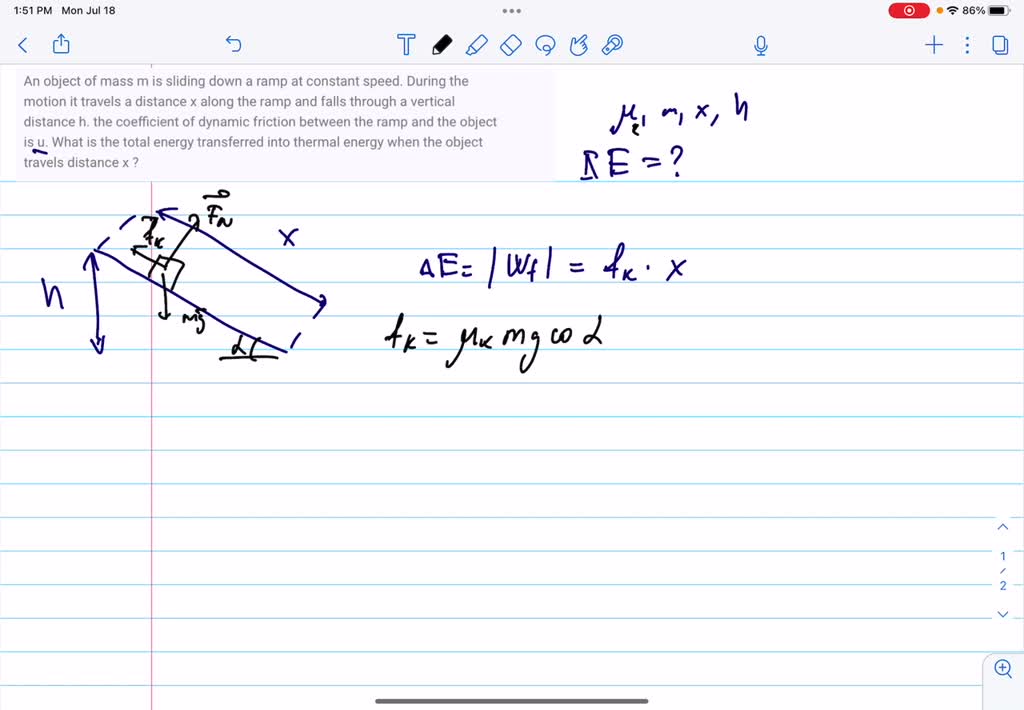 1:51 PM Mon Jul 18
86%
An object of mass m is sliding down a ramp at constant speed. During the
motion it travels a distance x along the ramp and falls through a vertical
distance h. the coefficient of dynamic friction between the ramp and the object
is u. What is the total energy transferred into thermal energy when the object
travels distance x ?
μ, m, x, h
ΔE = ?
F_N
f_k
x
h
mg
α
ΔE = |W_f| = f_k · x
f_k = μ_k mg cos α
1
/
2